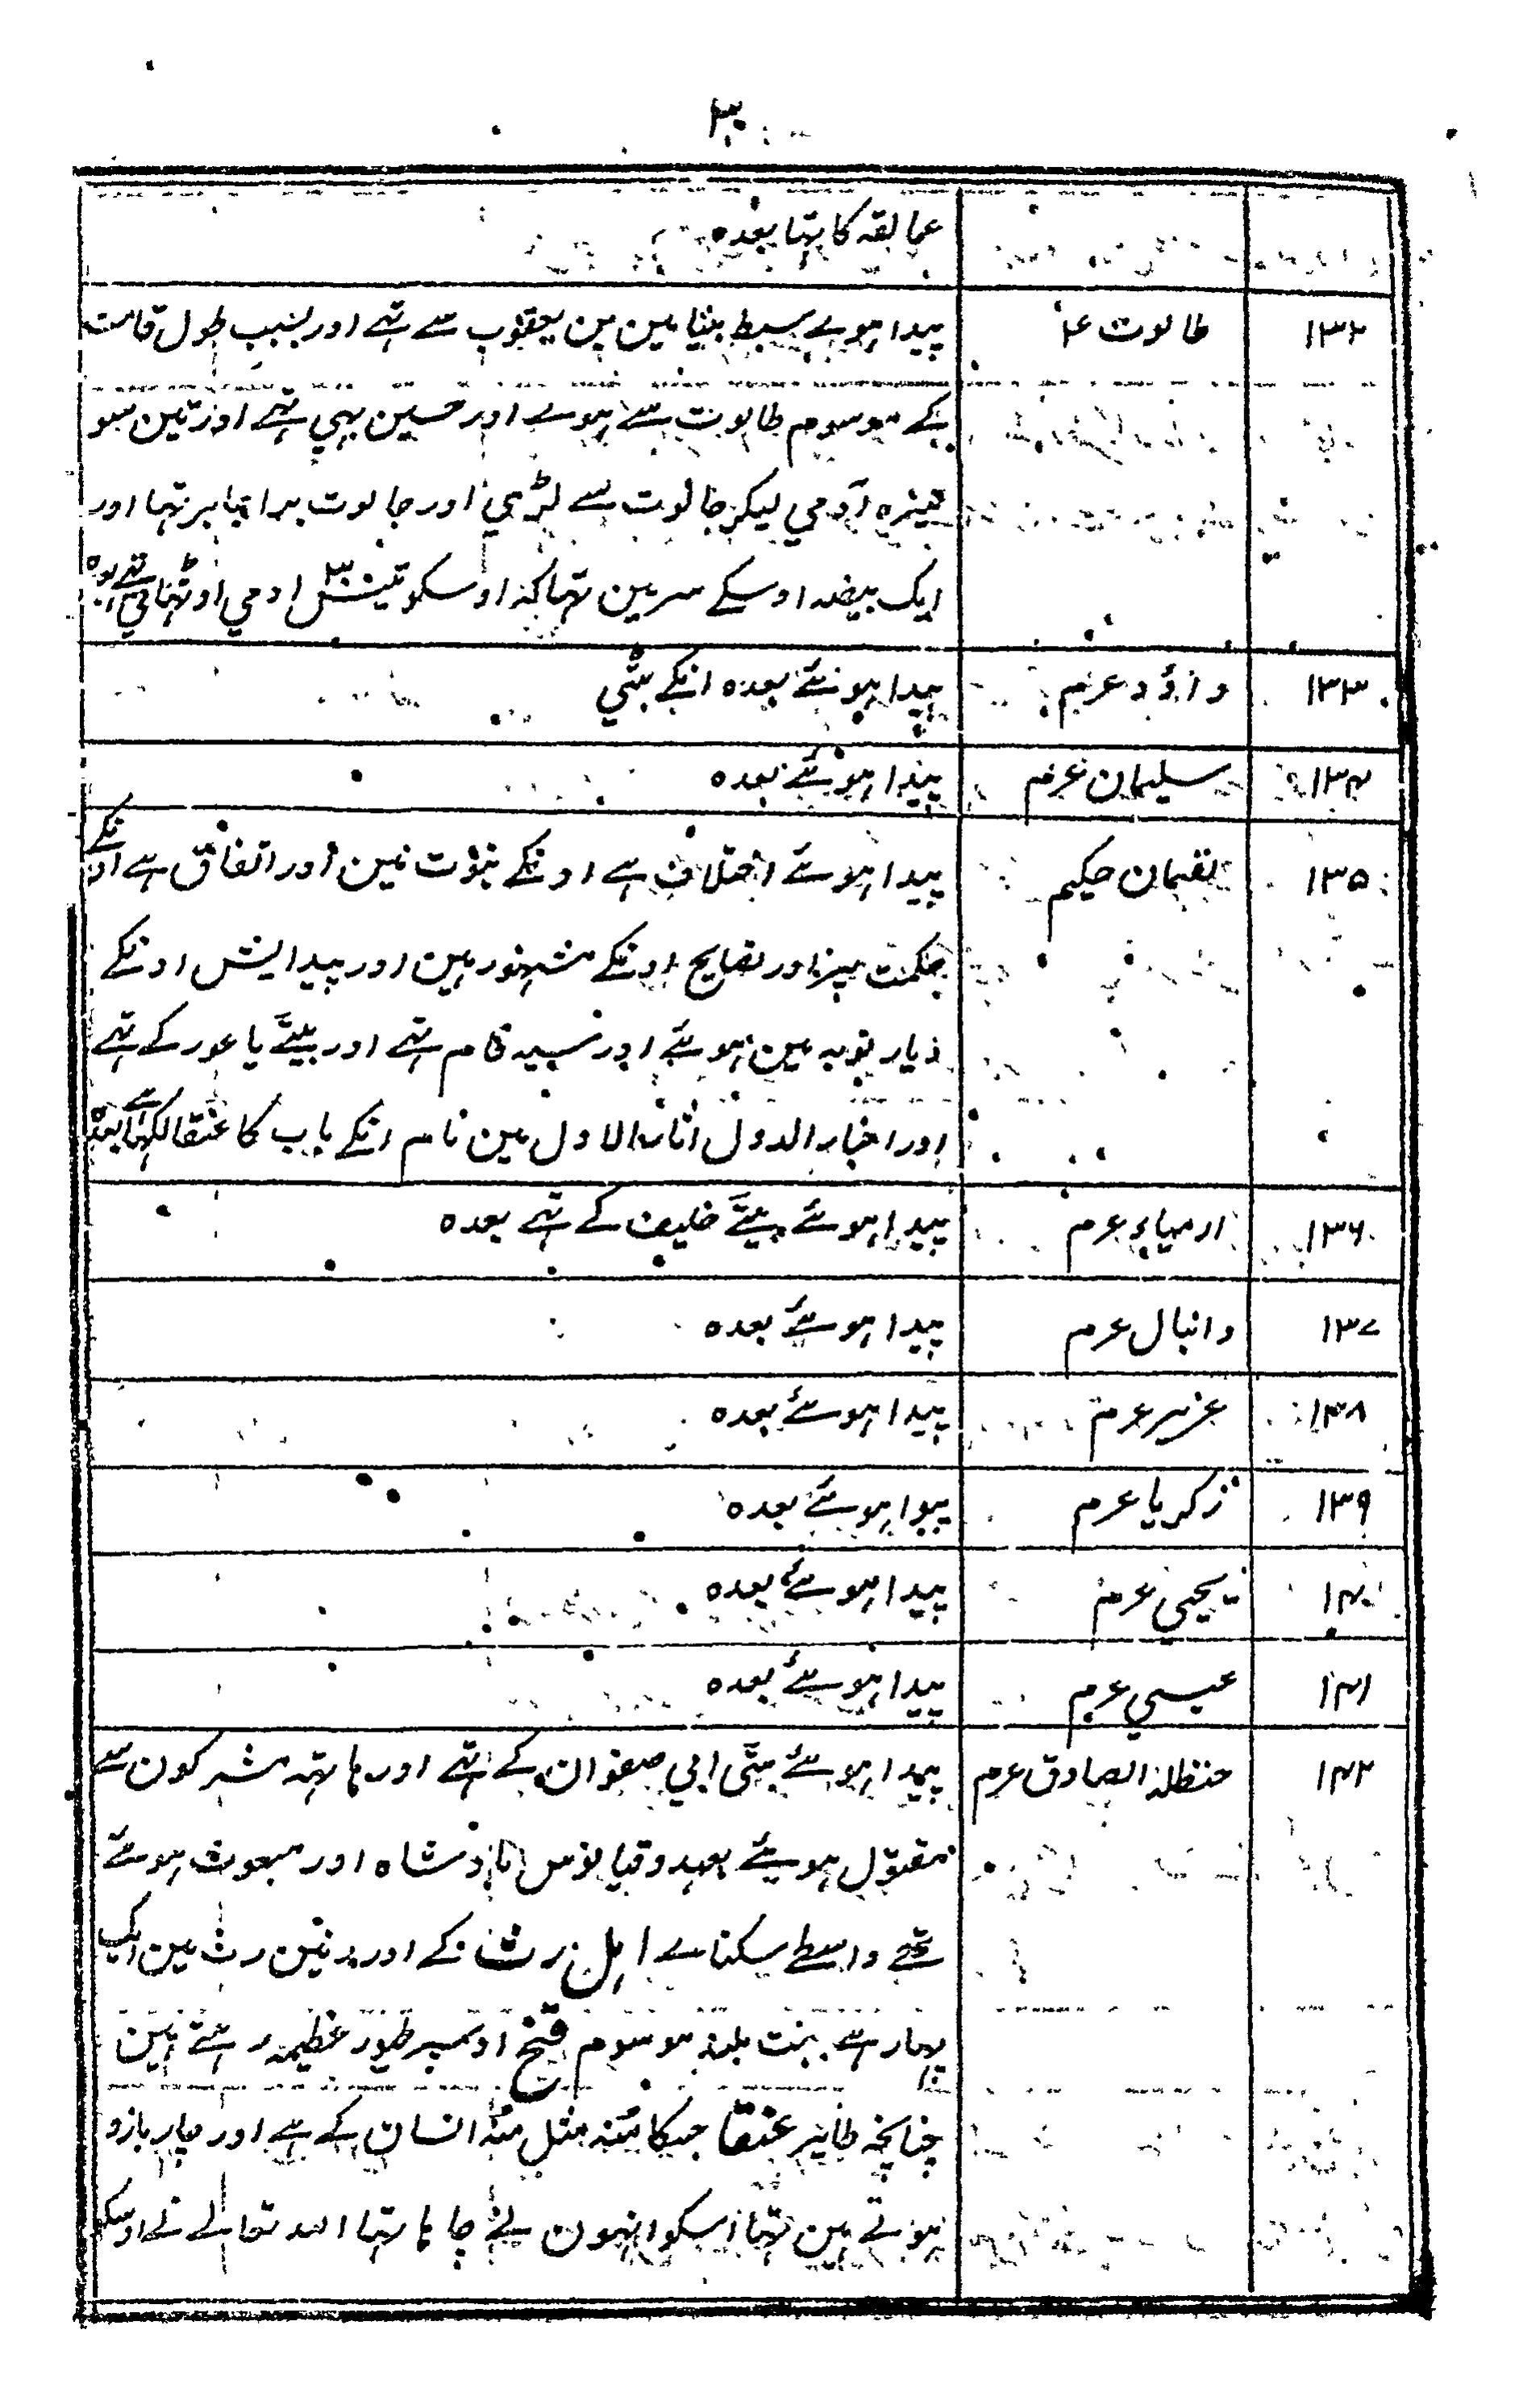 ۳۰
عمالقہ کا تہا بعدہ
۱۳۲ طالوت ع پیدا ہوے سبط بنیامین بن یعقوب سے تہے اور بسبب طول قامت
کے موسوم طالوت سے ہوے اور حسین بہی تہے اور تین سو
تیرہ آدمی لیکر جالوت سے لڑی اور جالوت بڑا جابر تہا اور
ایک بیضہ اوسکے سر مین تہا کہ اوسکو تیس ۳۰ ادمی اوٹہاتی تہے بعدہ
۱۳۳ داؤد عرم پیدا ہوئے بعدہ انکے بیٹی
۱۳۴ سلیمان عرم پیدا ہوئے بعدہ
۱۳۵ لقمان حکیم پیدا ہوئے اختلاف ہے اونکے نبوت مین اور اتفاق ہے اونکے
حکمت پر اور نصایح اونکے مشہور ہین اور پیدایش اونکے
دیار نوبہ مین ہوئے اور سیہ فام تہے اور بیٹے باعور کے تہے
اور اخبار الدول اثار الاول مین نام انکے باپ کا عنقا لکہا ہے بعدہ
۱۳۶ ارمیاء عرم پیدا ہوئے بیٹے خلیف کے تہے بعدہ
۱۳۷ دانیال عرم پیدا ہوئے بعدہ
۱۳۸ عزیر عرم پیدا ہوئے بعدہ
۱۳۹ زکریا عرم پیدا ہوئے بعدہ
۱۴۰ یحیی عرم پیدا ہوئے بعدہ
۱۴۱ عیسی عرم پیدا ہوئے بعدہ
۱۴۲ حنظلہ الصادق عرم پیدا ہوئے بیٹی ابی صفوان کے تہے اور ہاتہہ مشرکون سے
مقتول ہوئے بعہد دقیانوس بادشاہ اور مبعوث ہوئے
تہے واسطے سکنائے اہل رس کے اور زمین رس مین ایک
پہاڑ ہے بہت بلند موسوم فتخ اوسپر طیور عظیمہ رہتے ہین
چنانچہ طایر عنقا جسکا منہ مثل منہ انسان کے ہے اور چار بازو
ہوتے ہین تہا اسکو انہون نے چاہا تہا اللہ تعالے نے اوسکو